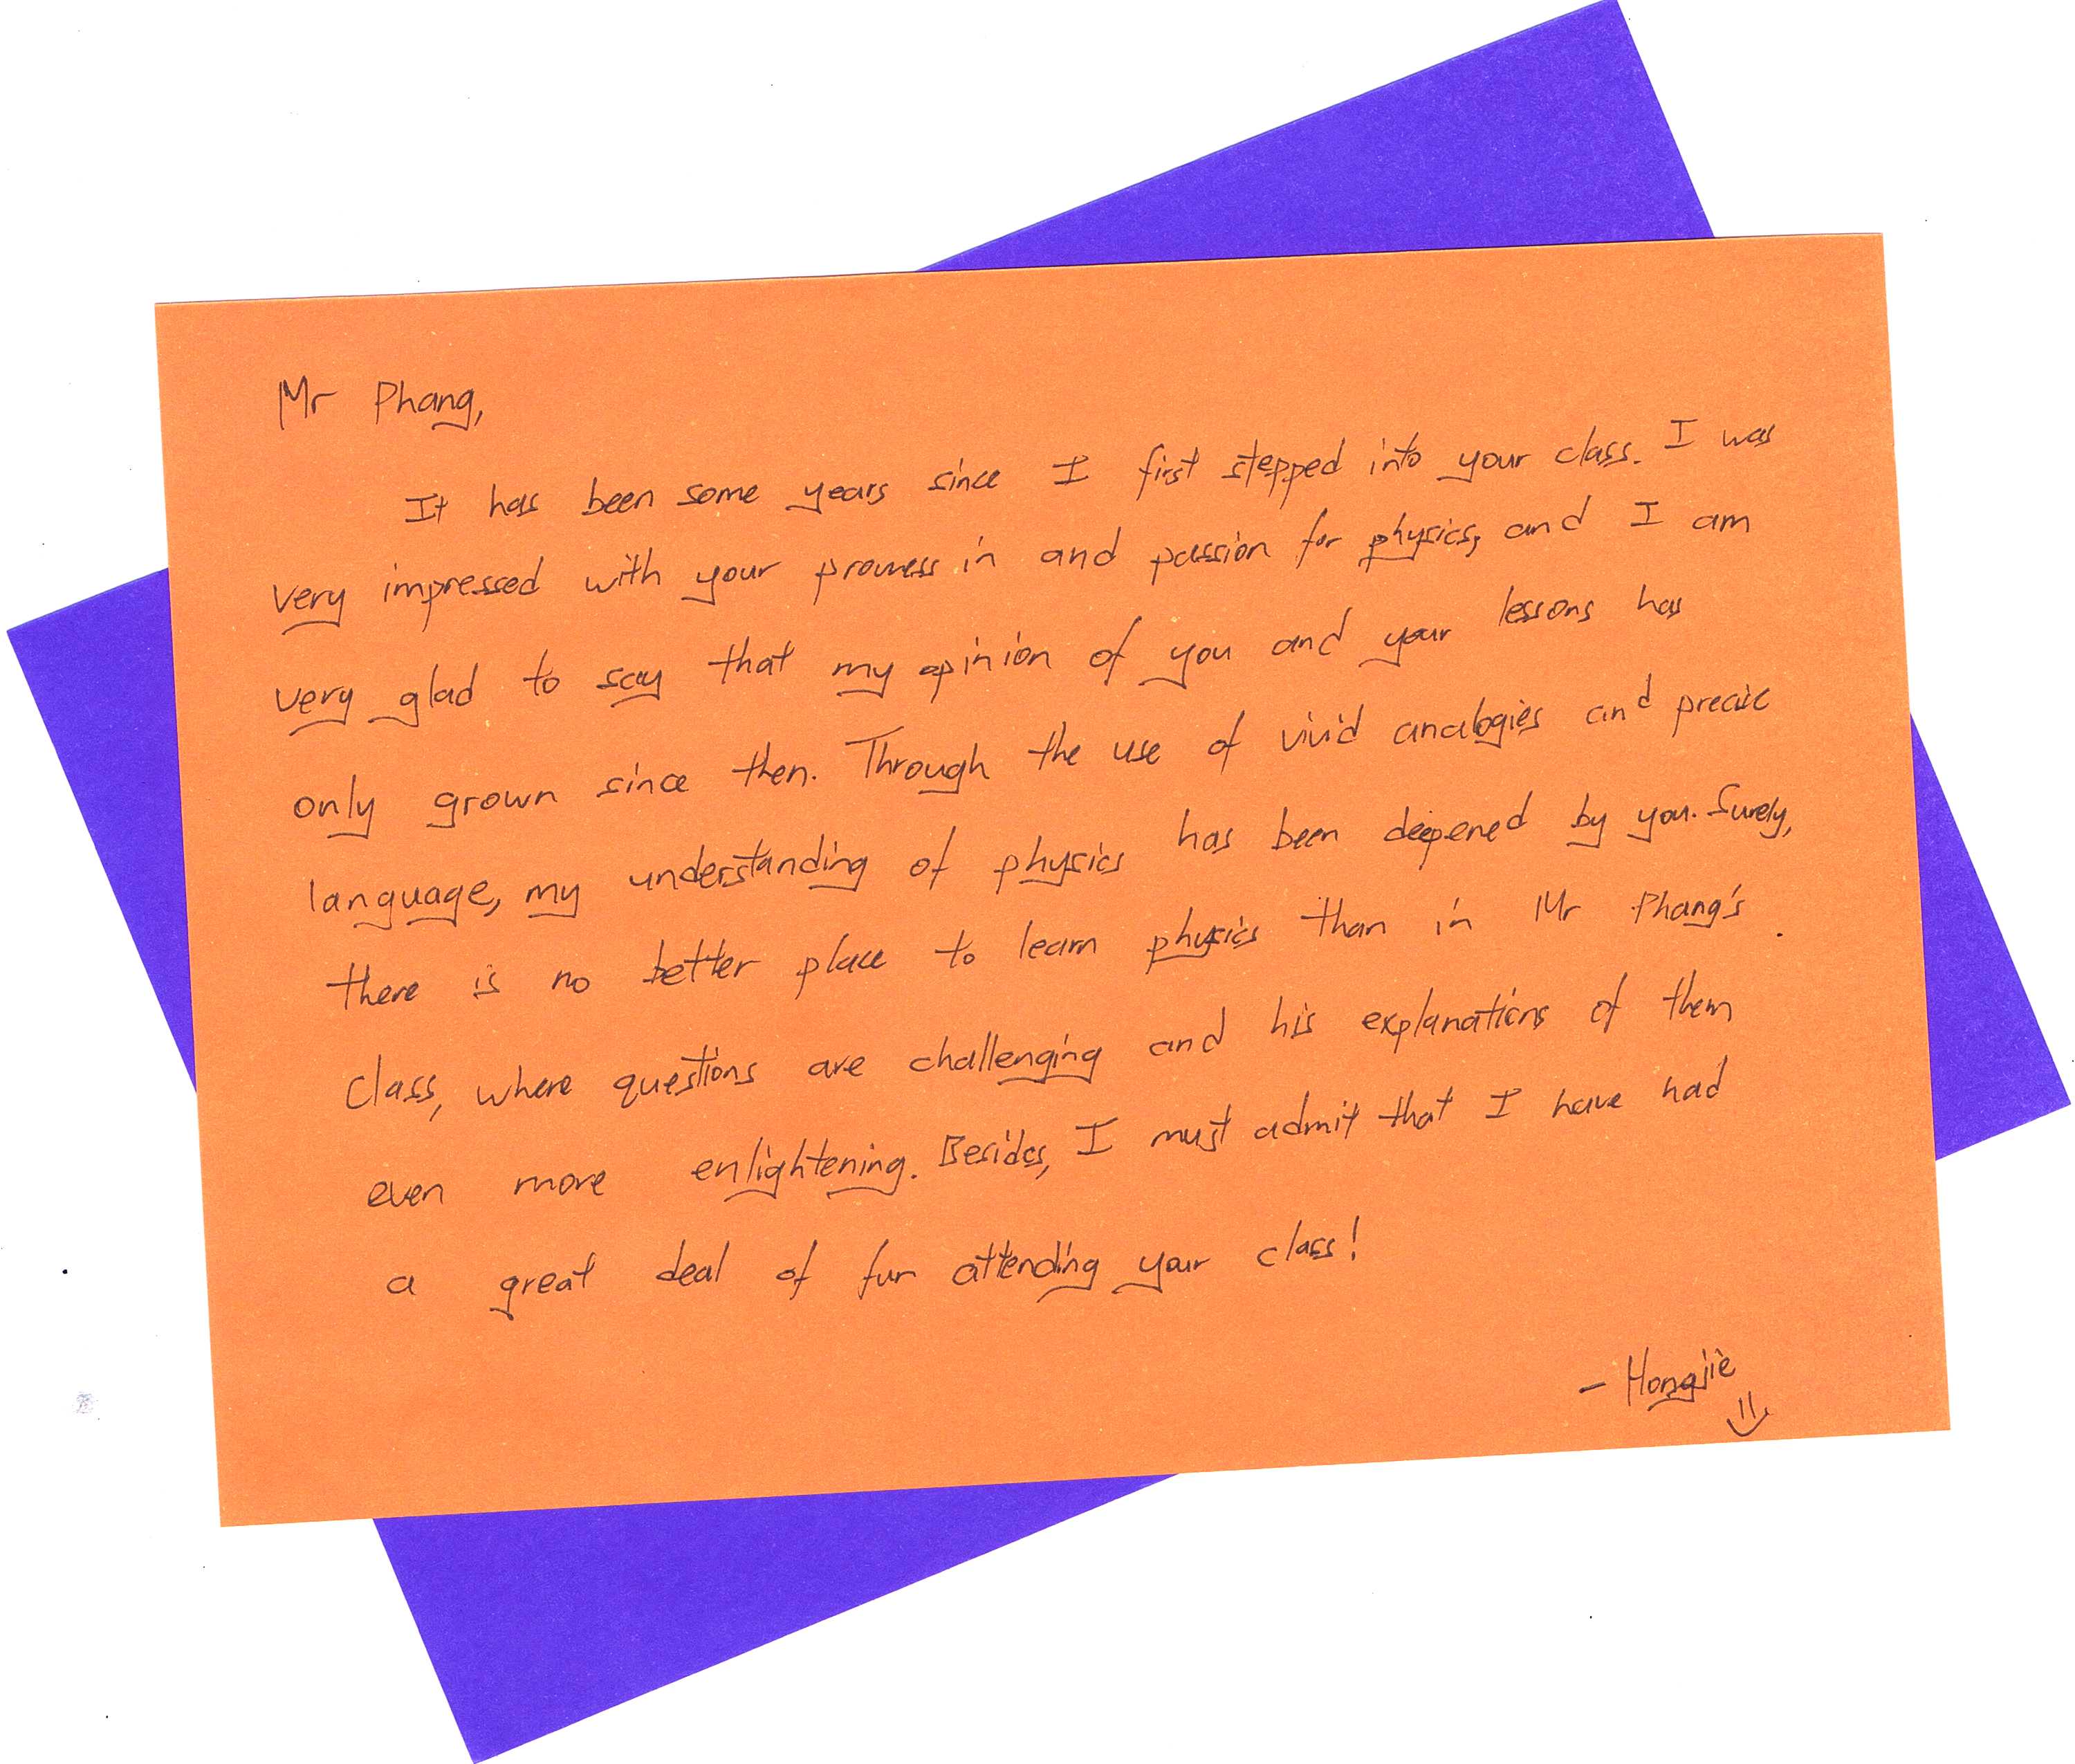 Mr Phang,
It has been some years since I first stepped into your class. I was
very impressed with your prowess in and passion for physics, and I am
very glad to say that my opinion of you and your lessons has
only grown since then. Through the use of vivid analogies and precise
language, my understanding of physics has been deepened by you. Surely,
there is no better place to learn physics than in Mr Phang's
class, where questions are challenging and his explanations of them
even more enlightening. Besides, I must admit that I have had
a great deal of fun attending your class!
- Hongjie